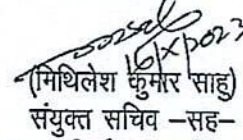 16/X/2023
(मिथिलेश कुमार साहु)
संयुक्त सचिव –सह–